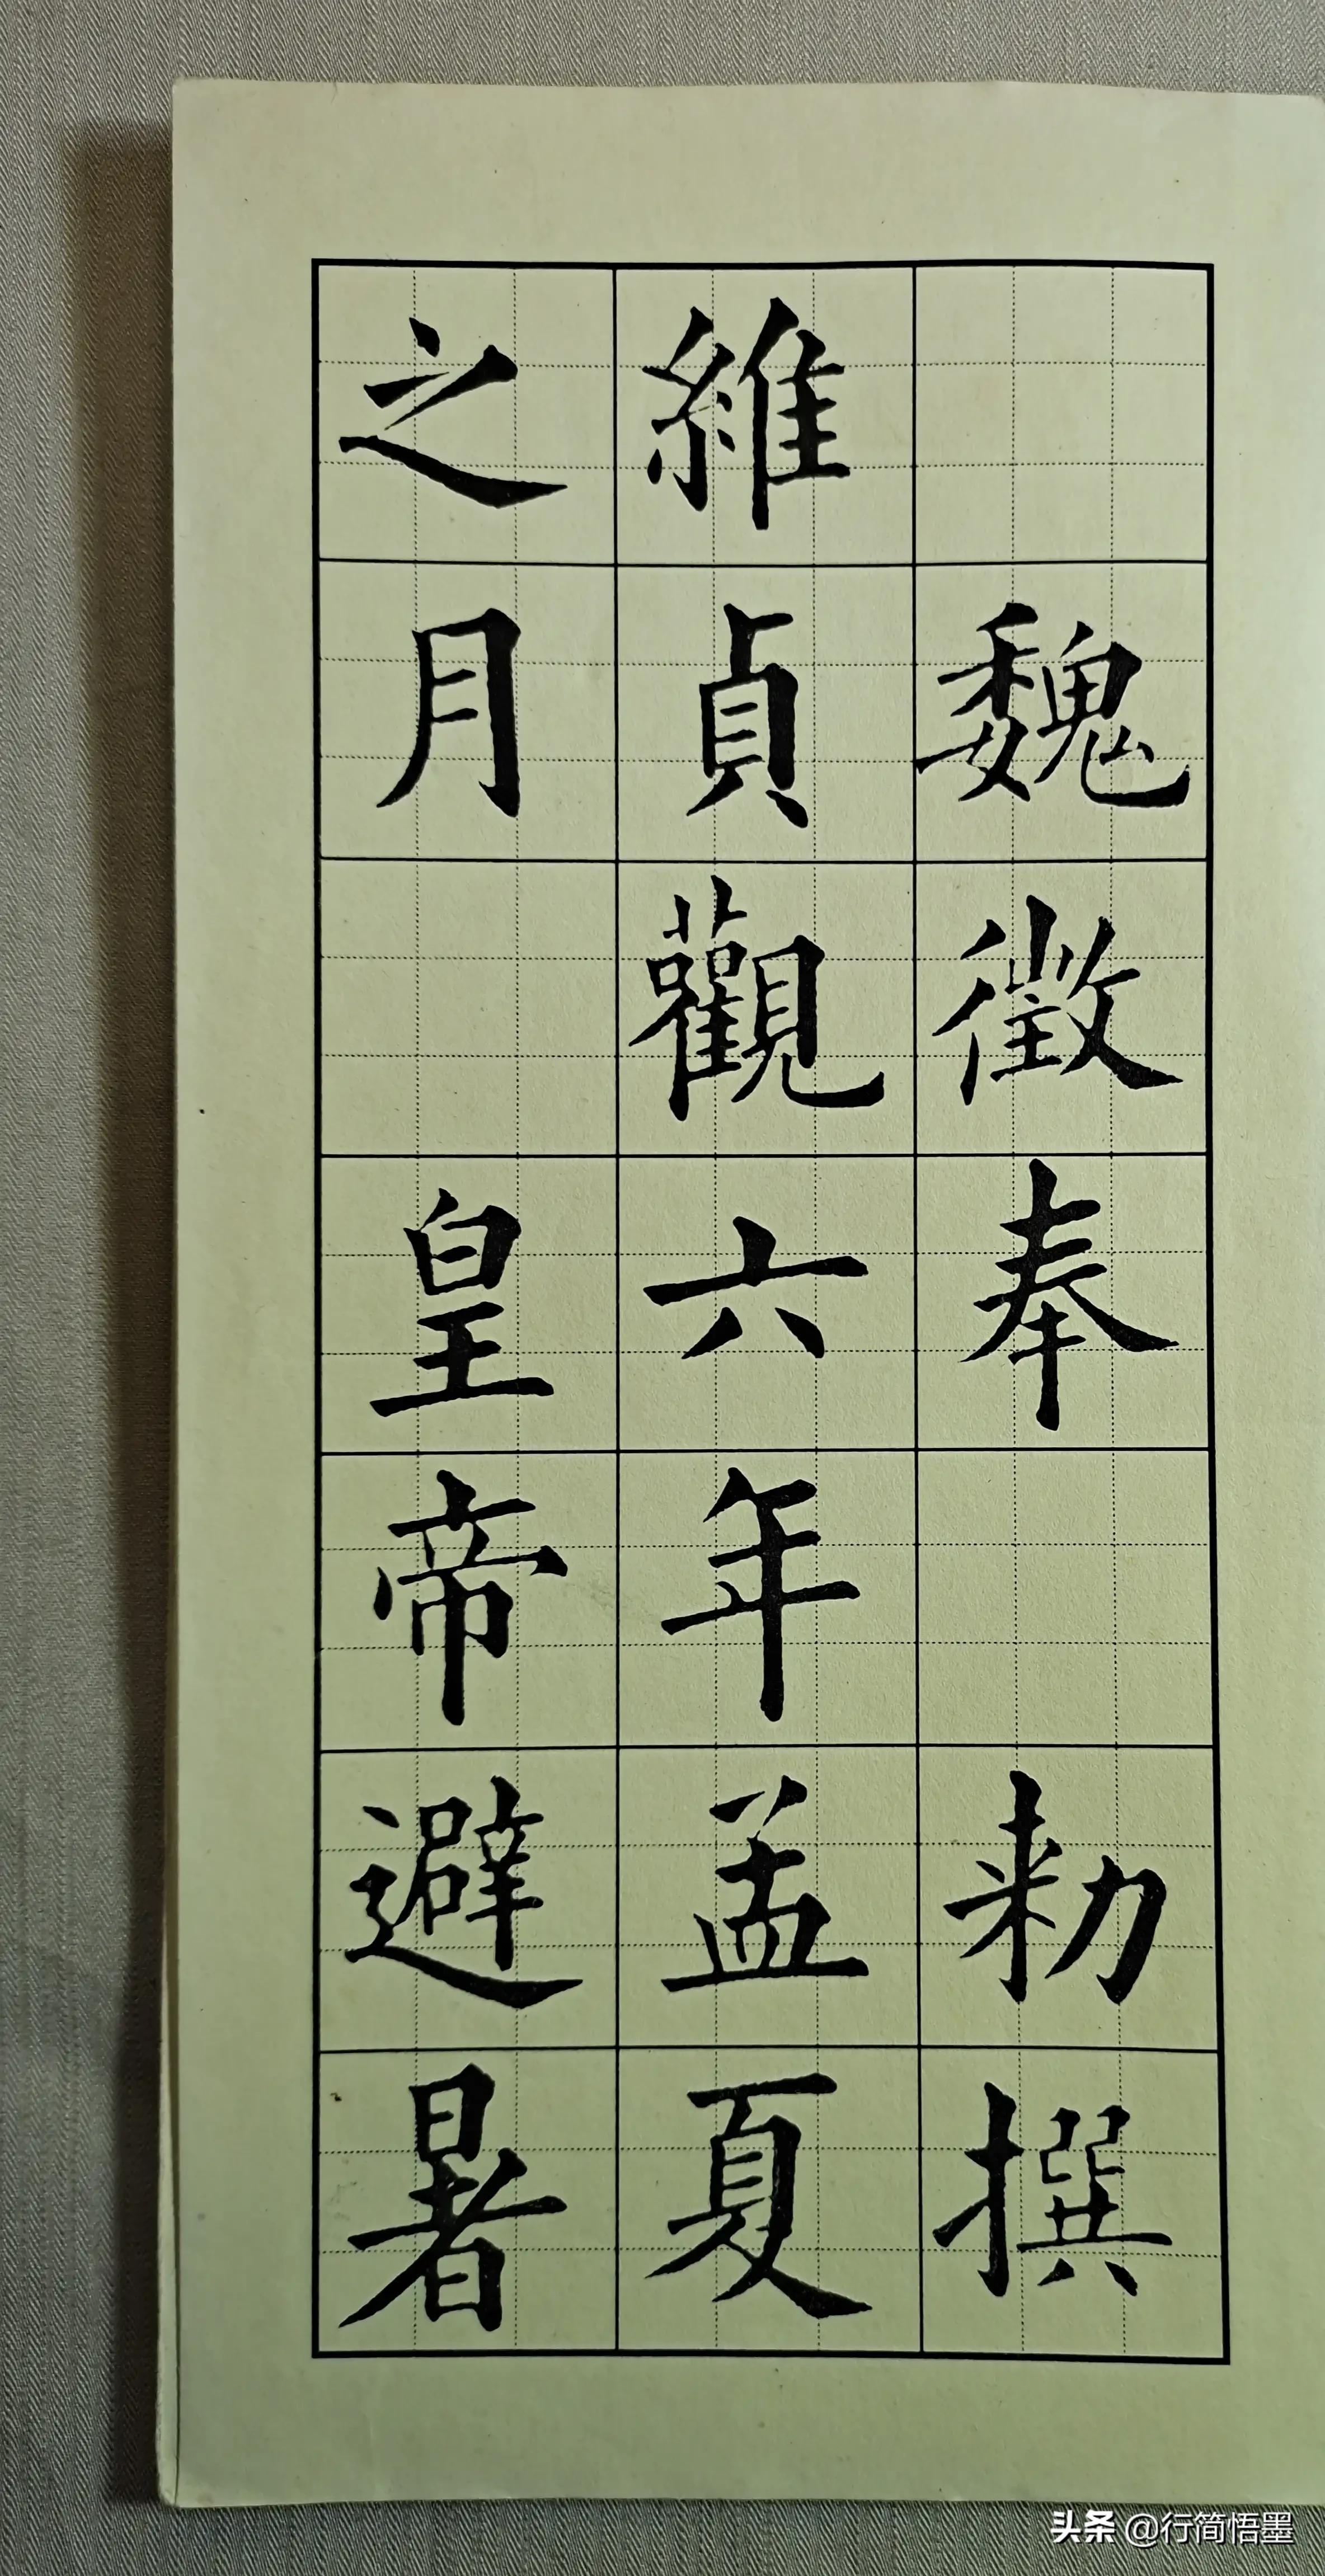 魏徵奉 勑撰
維貞觀六年孟夏
之月 皇帝避暑
头条 @行简悟墨